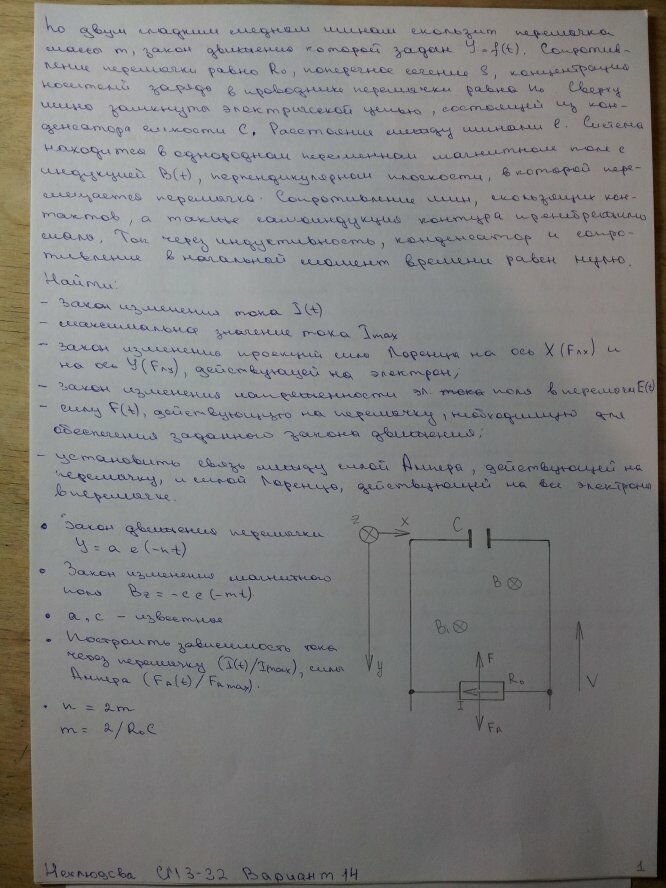 По двум гладким медным шинам скользит перемычка
массы m, закон движения которой задан Y=f(t). Сопротив-
ление перемычки равно R₀, поперечное сечение S, концентрация
носителей заряда в проводнике перемычки равна n₀. Сверху
шины замкнуты электрической цепью, состоящей из кон-
денсатора ёмкости C. Расстояние между шинами l. Система
находится в однородном переменном магнитном поле с
индукцией B(t), перпендикулярном плоскости, в которой пере-
мещается перемычка. Сопротивление шин, скользящих кон-
тактов, а также самоиндукция контура пренебрежимо
малы. Ток через индуктивность, конденсатор и сопро-
тивление в начальный момент времени равен нулю.
Найти:
- закон изменения тока I(t)
- максимальное значение тока Imax
- закон изменения проекций силы Лоренца на ось X (Fлx) и
на ось Y (Fлy), действующей на электрон;
- закон изменения напряженности эл. поля в перемычке E(t)
- силу F(t), действующую на перемычку, необходимую для
обеспечения заданного закона движения;
- установить связь между силой Ампера, действующей на
перемычку, и силой Лоренца, действующей на все электроны
в перемычке.
• Закон движения перемычки
Y = a e (-nt)
• Закон изменения магнитного
поля Bz = -c e (-mt)
• a, c - известные
• Построить зависимость тока
через перемычку (I(t)/Imax), силы
Ампера (FA(t)/FAmax).
• n = 2m
m = 2/R₀C
z X C
B
Bi
y F R₀ V
I
FA
Неклюдова СМ3-32 Вариант 14
1